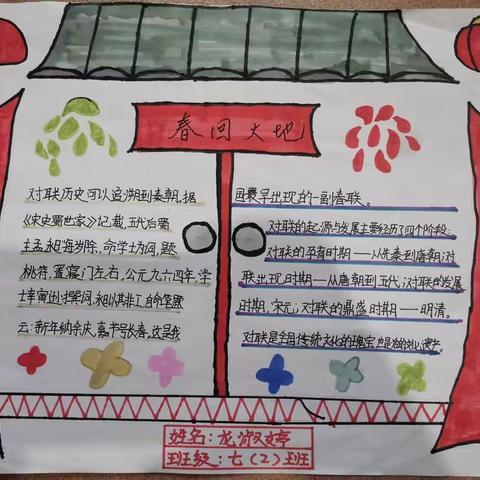 春回大地
对联历史可以追溯到秦朝。据
《宋史蜀世家》记载，五代后蜀
主孟昶每岁除，命学士为词，题
桃符，置寝门左右，公元九六四年，学
士幸寅逊撰词，昶以其非工，自命笔题
云：新年纳余庆，嘉节号长春，这是我
国最早出现的一副春联。
对联的起源与发展主要经历了四个阶段：
对联的孕育时期——从先秦到唐朝；对
联出现时期——从唐朝到五代；对联的发展
时期，宋元；对联的鼎盛时期——明清。
对联是全国传统文化的瑰宝
姓名：龙淑婷
班级：七（2）班